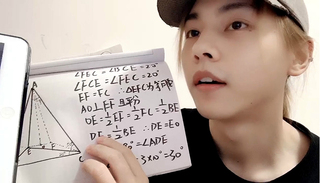 ∠FEC = ∠BCE = 20°
∠FCE = ∠FEC = 20°
EF = FC ∴ △EFC为等腰
AO⊥EF 且平分
OE = 1/2 EF = 1/2 FC = 1/2 BE
DE = 1/2 BE ∴ DE = EO
= ∠ADE
= 30°
A
E
F